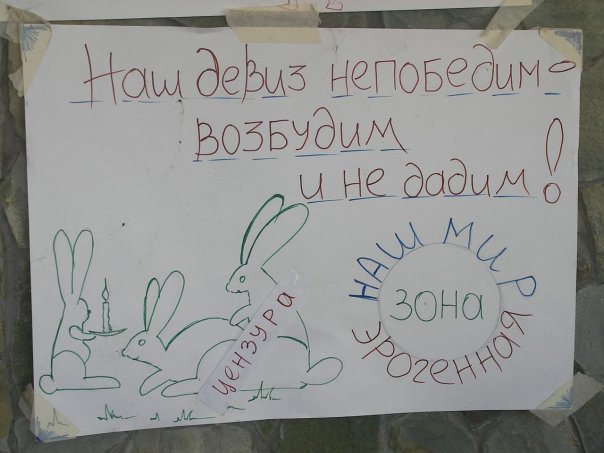 Наш девиз непобедим -
возбудим
и не дадим!
цензура
НАШ МИР
ЗОНА
ЭРОГЕННАЯ